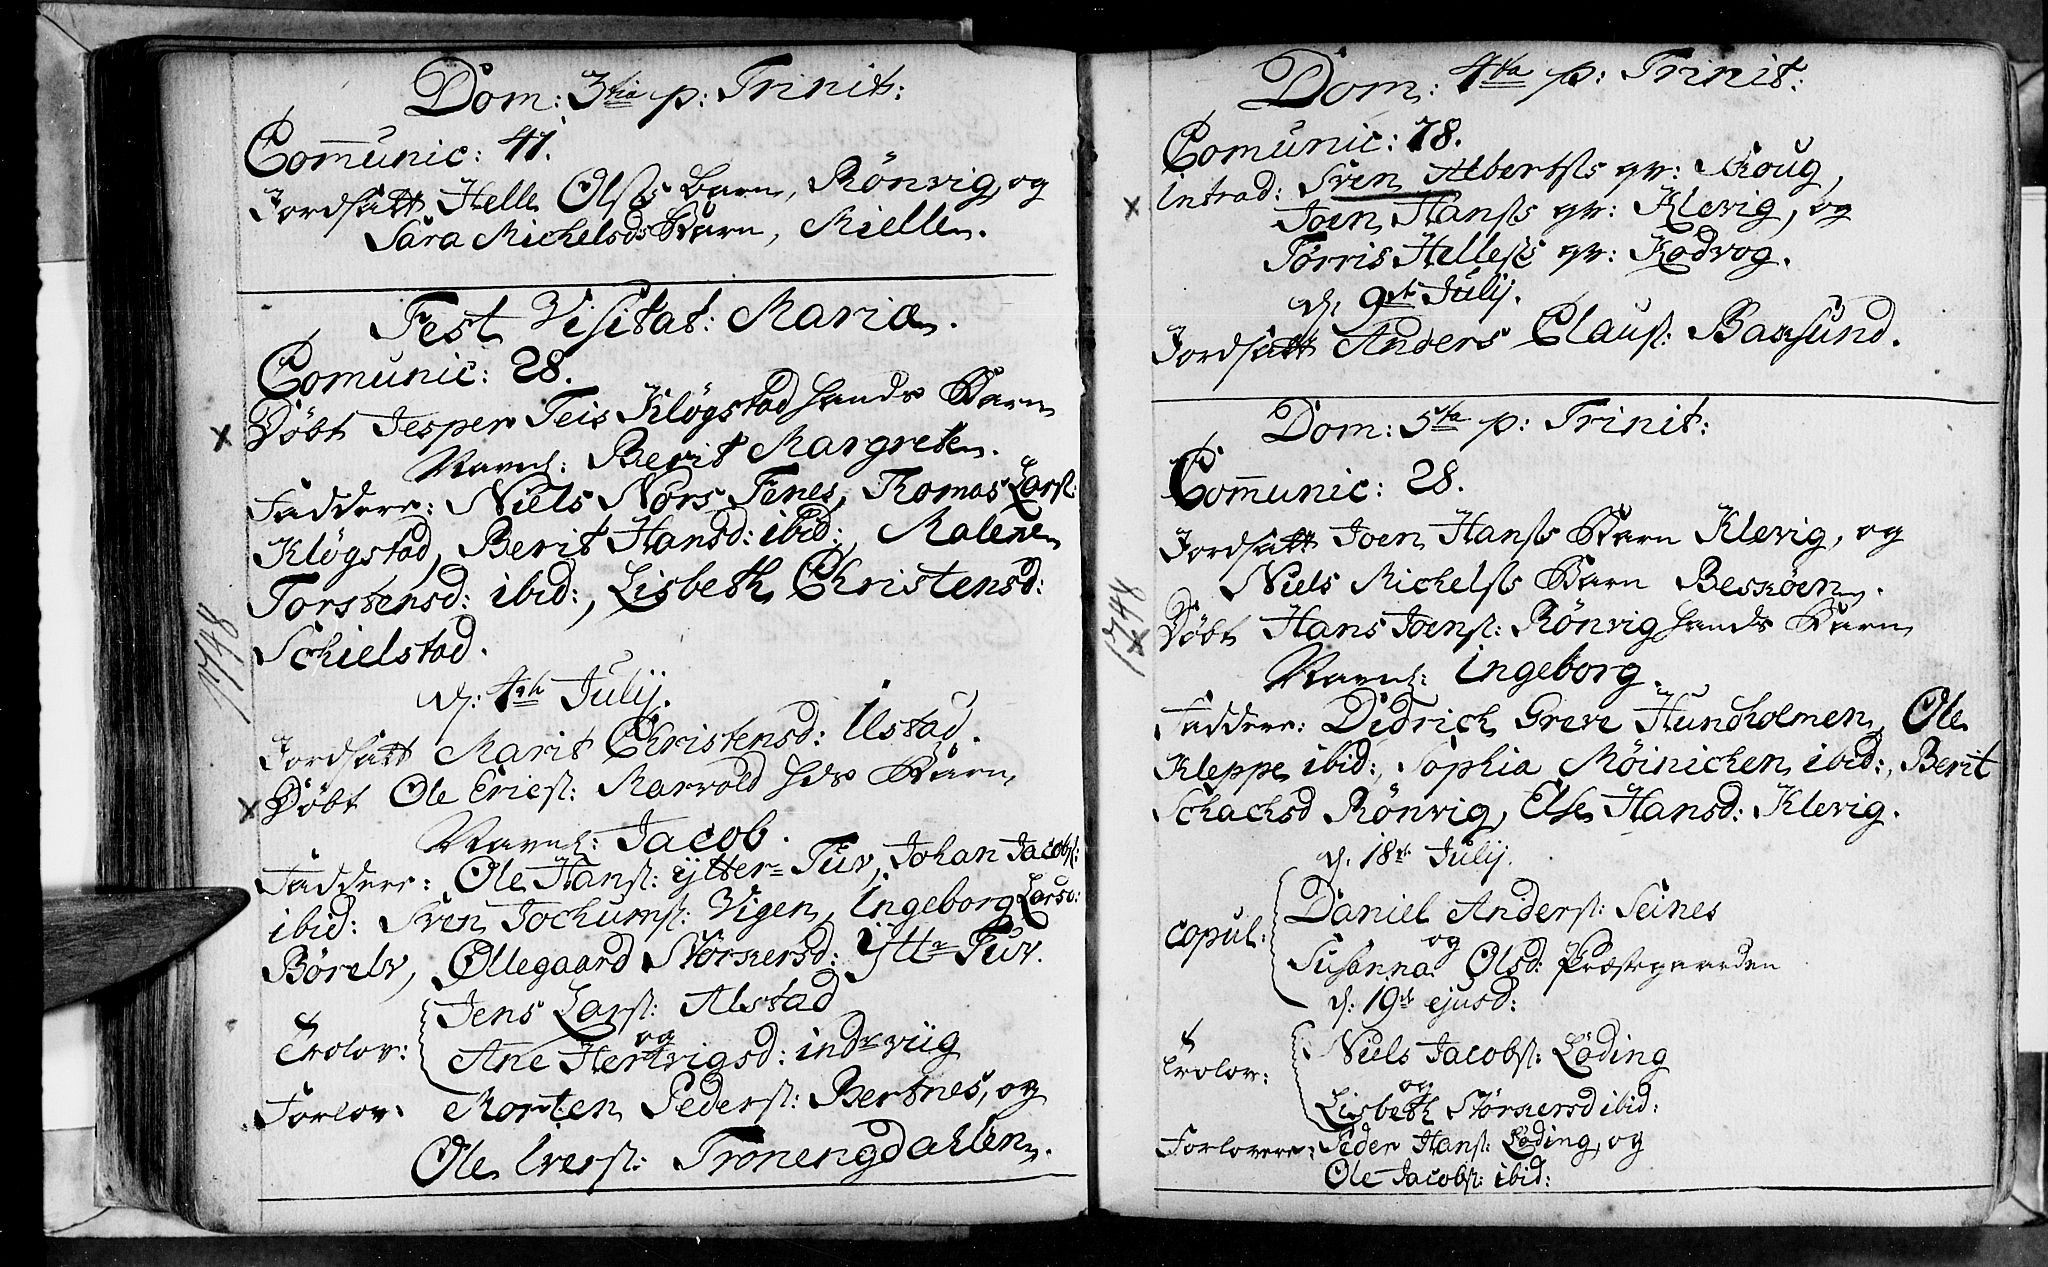 Dom: 3tia p: Trinit:
Comunic: 41.
Jordsatt Helle Olss Barn, Rönvig, og
Sara Michelsds Barn, Mielle.
Fest Visitat: Mariæ.
Comunic: 28.
x Döbt Jesper Teis Klögstad hands Barn
Navnl: Berit Margrete.
Faddere: Niels Nors Fenes, Tomas Larss:
Klögstad, Berit Hansd: ibid:, Malene
Torstensd: ibid:, Lisbeth Christensd:
Schielstad.
1748
d: 4de Julij.
Jordsatt Marit Christensd: Ilstad.
x Döbt Ole Erics: Marvold hds Barn
Navnl: Jacob.
Faddere: Ole Hans: ytter=Tuv, Johan Jacobs:
ibid: Sven Jochums: Vigen, Ingeborg Larsd:
Börelv, Øllegaard Störkersd: Ytt=Tuv.
Jens Lars: Alstad
Trolov: og
Ane Hertvigsd: indrviig
Forlov: Morten Peders: Bertnes, og
Ole Ivers: Tronengdahlen.
Dom: 4ta p: Trinit:
Comunic: 78.
x Introd: Sven Albertss qv: Skoug,
Joen Hanss qv: Klevig, og
Torris Helless qv: Kodvog.
d. 9de Julij.
Jordsatt Anders Claus: Badsund.
Dom: 5ta p: Trinit:
Comunic: 28.
Jordsatt Joen Hanss Barn Klevig, og
Niels Michelss Barn Besköen.
1748
x Döbt Hans Joens: Rönvig hands Barn
Navnl: Ingeborg.
Faddere: Didrich Greve Hundholmen, Ole
Kleppe ibid:, Sophia Möinichen ibid:, Berit
Schachsd Rönvig, Else Hansd: Klevig.
d. 18de Julij.
Daniel Anders: Seines
copul: og
Susanna Olsd: Præstegaarden
d: 19de ejusd:
Niels Jacobs: Löding
Trolov: og
Lisbeth Störkersd ibid:
Forlovere: Peder Hans: Löding, og
Ole Jacobs: ibid: